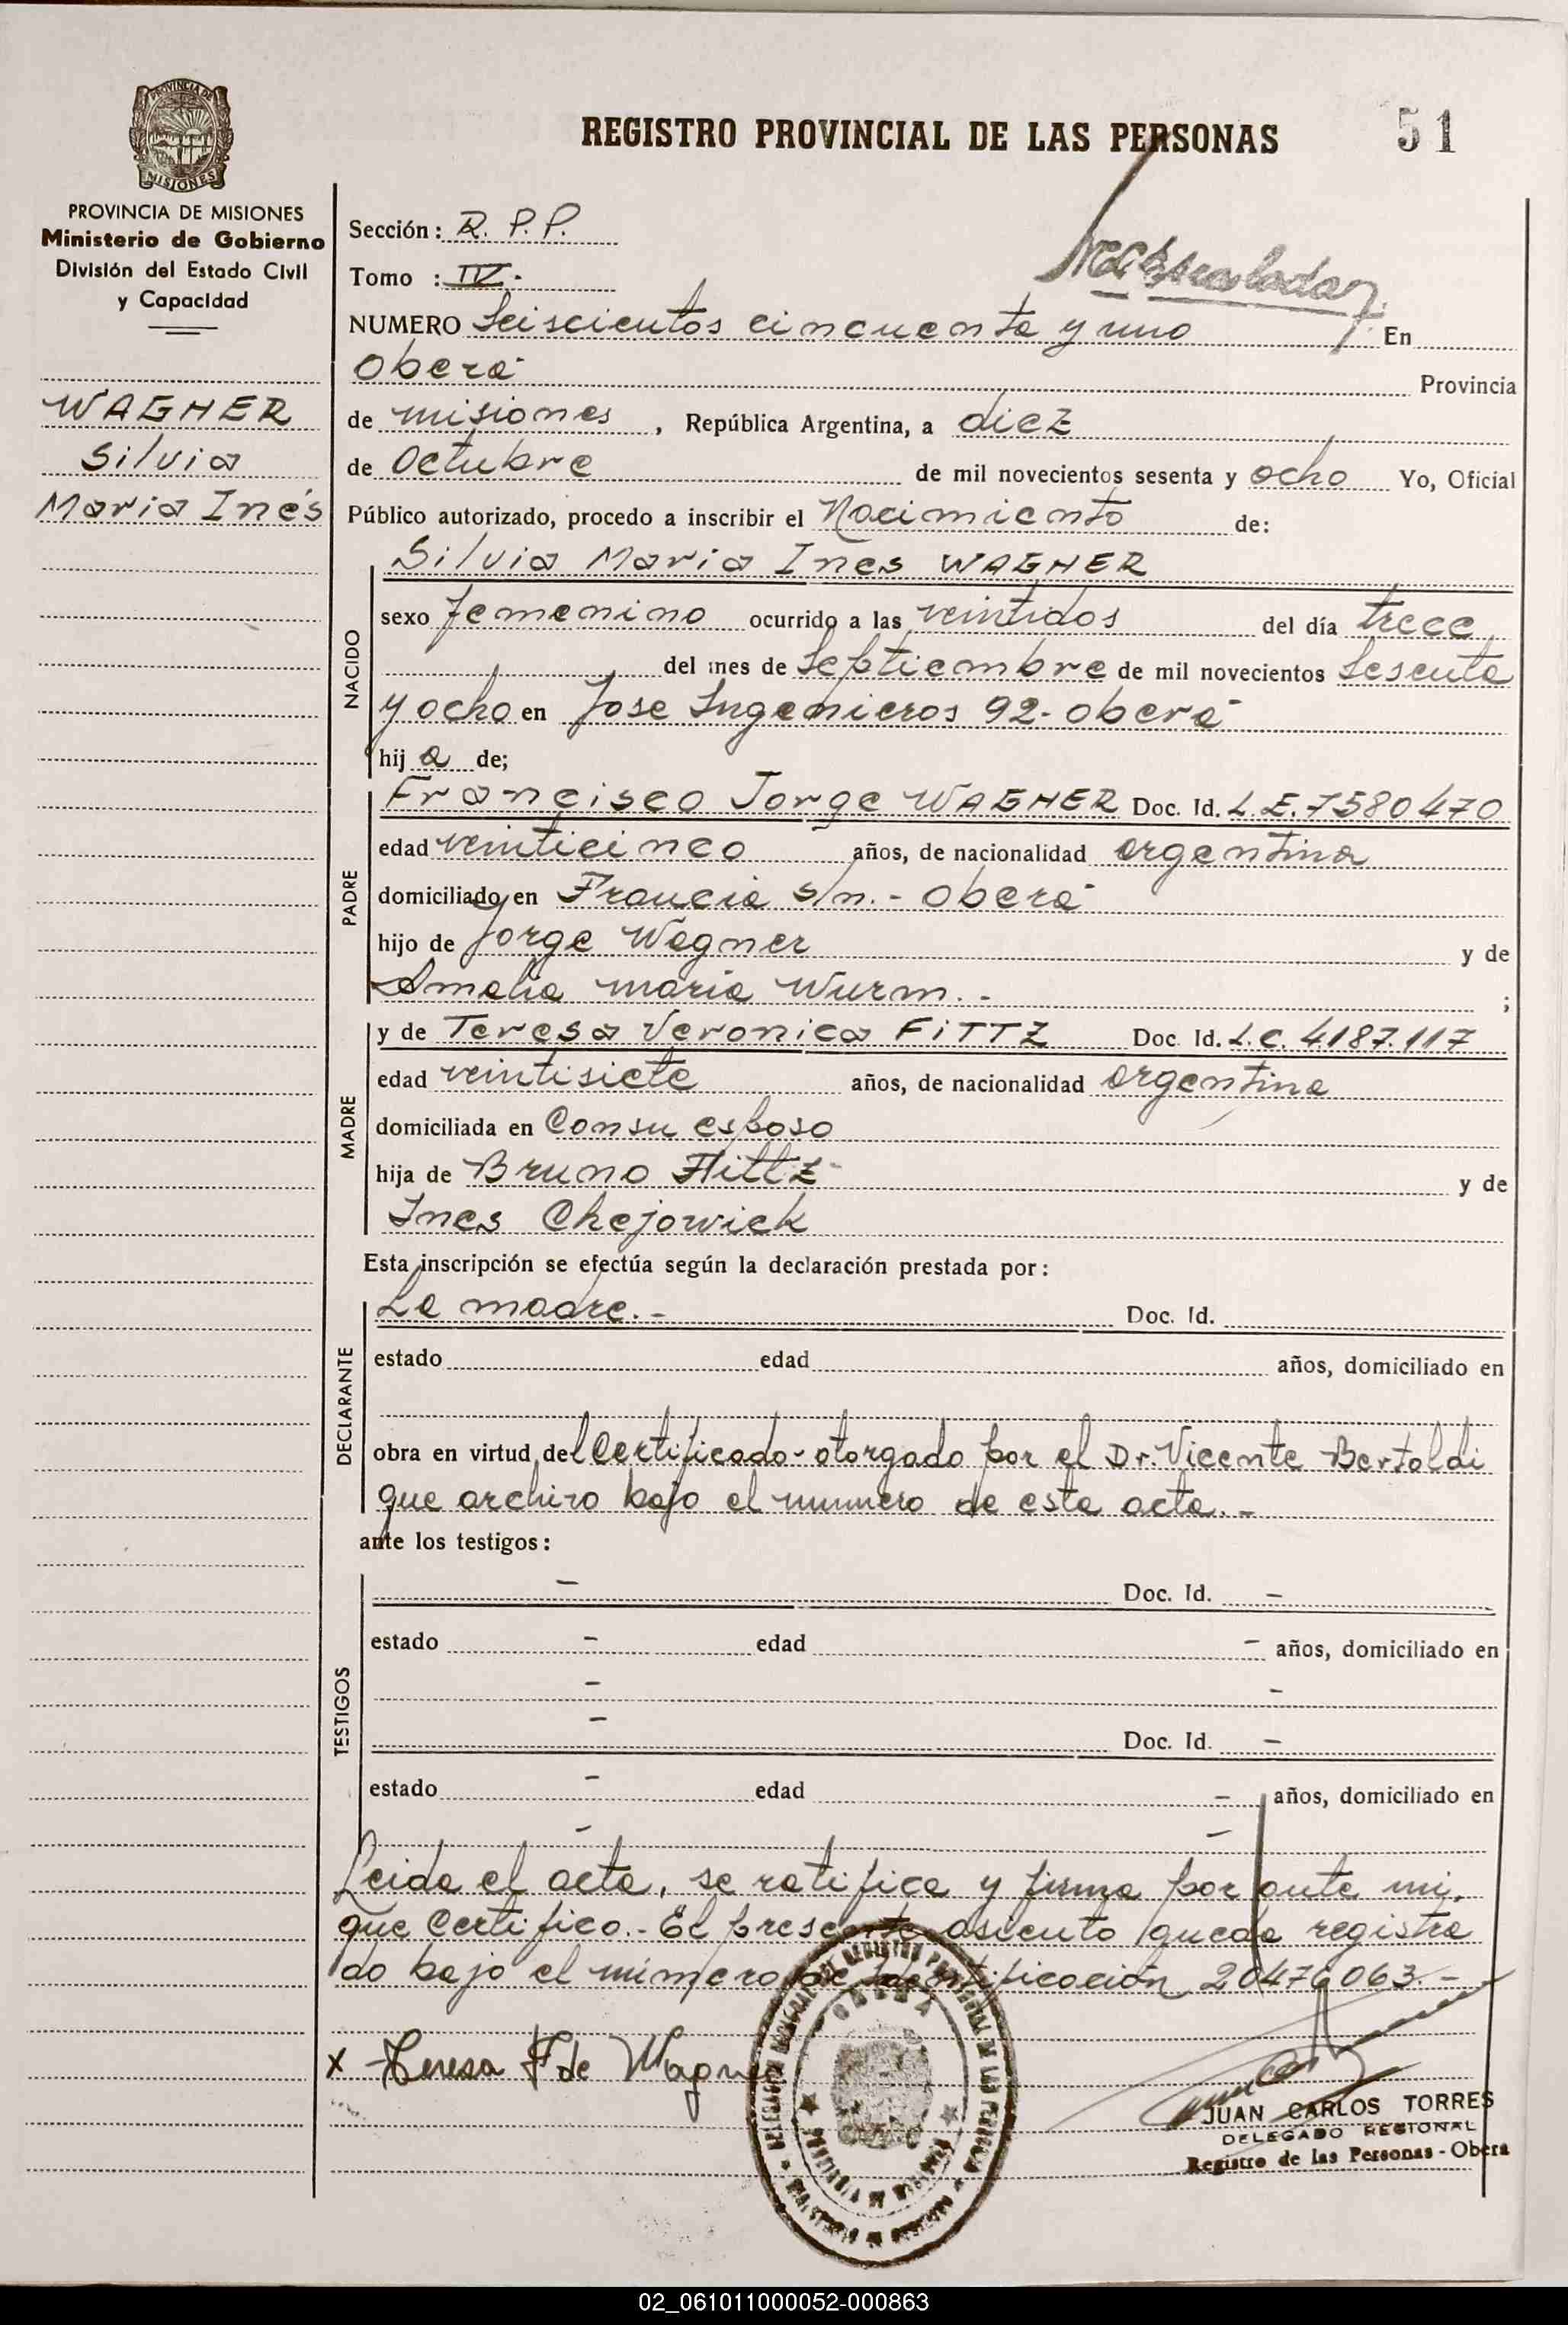 REGISTRO PROVINCIAL DE LAS PERSONAS 51
PROVINCIA DE MISIONES
MISIONES
PROVINCIA DE MISIONES
Ministerio de Gobierno
División del Estado Civil
y Capacidad
WAGNER
Silvia
Maria Inés
Sección: R. P. P.
Tomo : IV.
NUMERO Seiscientos cincuenta y uno En
Oberá Provincia
de misiones, República Argentina, a diez
de Octubre de mil novecientos sesenta y ocho Yo, Oficial
Público autorizado, procedo a inscribir el Nacimiento de:
Silvia Maria Ines WAGNER
NACIDO
sexo femenino ocurrido a las veintidos del día trece
del mes de Septiembre de mil novecientos sesenta
y ocho en Jose Ingenieros 92-Oberá
hij a de;
PADRE
Francisco Jorge WAGNER Doc. Id. L.E. 7580470
edad veinticinco años, de nacionalidad argentina
domiciliado en Francia s/n.- Oberá
hijo de Jorge Wagner y de
Amalia maria Wurm.- ;
MADRE
y de Teresa Veronica FiTTZ Doc. Id. L.C. 4187.117
edad veintisiete años, de nacionalidad argentina
domiciliada en Consu esposo
hija de Bruno Fittz y de
Ines Chejowick
Esta inscripción se efectúa según la declaración prestada por:
DECLARANTE
La madre.- Doc. Id.
estado edad años, domiciliado en
obra en virtud del Certificado-otorgado por el Dr. Vicente Bertoldi
que archivo bajo el numero de esta acta.-
ante los testigos:
TESTIGOS
- Doc. Id. -
estado - edad - años, domiciliado en
- -
- Doc. Id. -
estado - edad - años, domiciliado en
- -
Leida el acta, se ratifica y firma por ante mi,
que Certifico.- El presente asiento queda registra
do bajo el número de Identificación 20476063.-
x Teresa F de Wagner
OBERA
JUAN CARLOS TORRES
DELEGADO REGIONAL
Registro de las Personas - Oberá
02_061011000052-000863